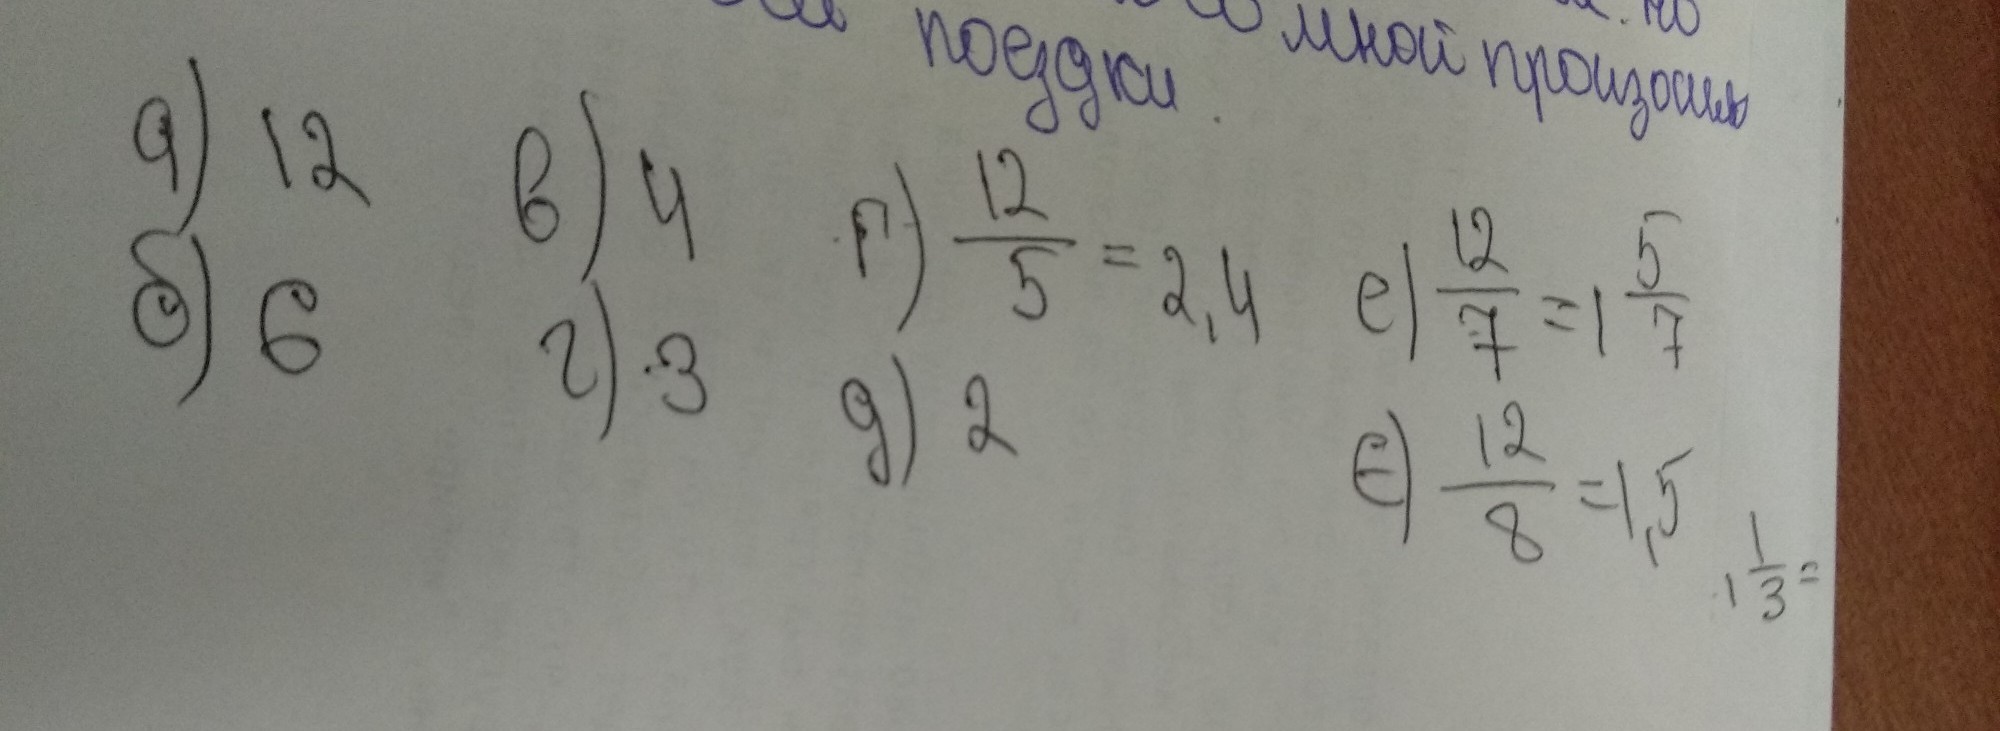 мной произошл
поездки.
а) 12
б) 6
в) 4
г) 3
ґ) 12/5 = 2,4
д) 2
е) 12/7 = 1 5/7
є) 12/8 = 1,5
1 1/3 =